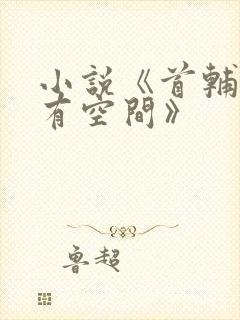 小説《首輔
有空間》
魯超